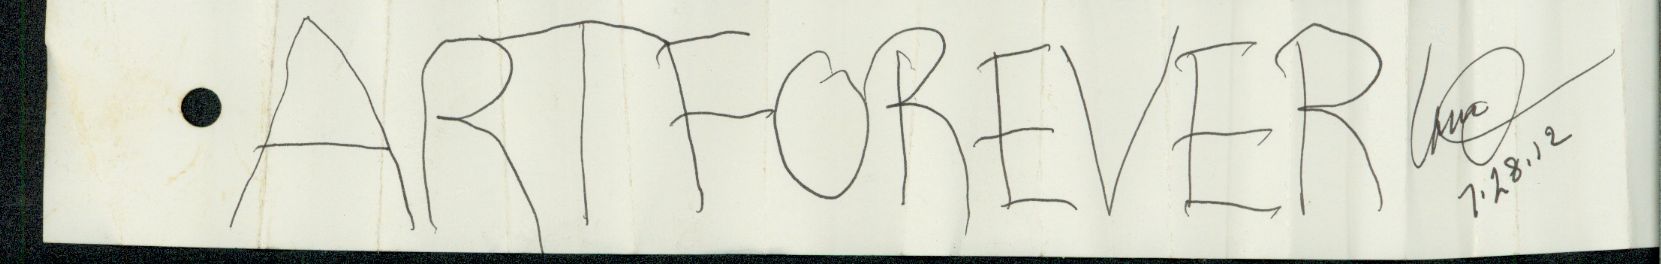 ARTFOREVER
7.28.12